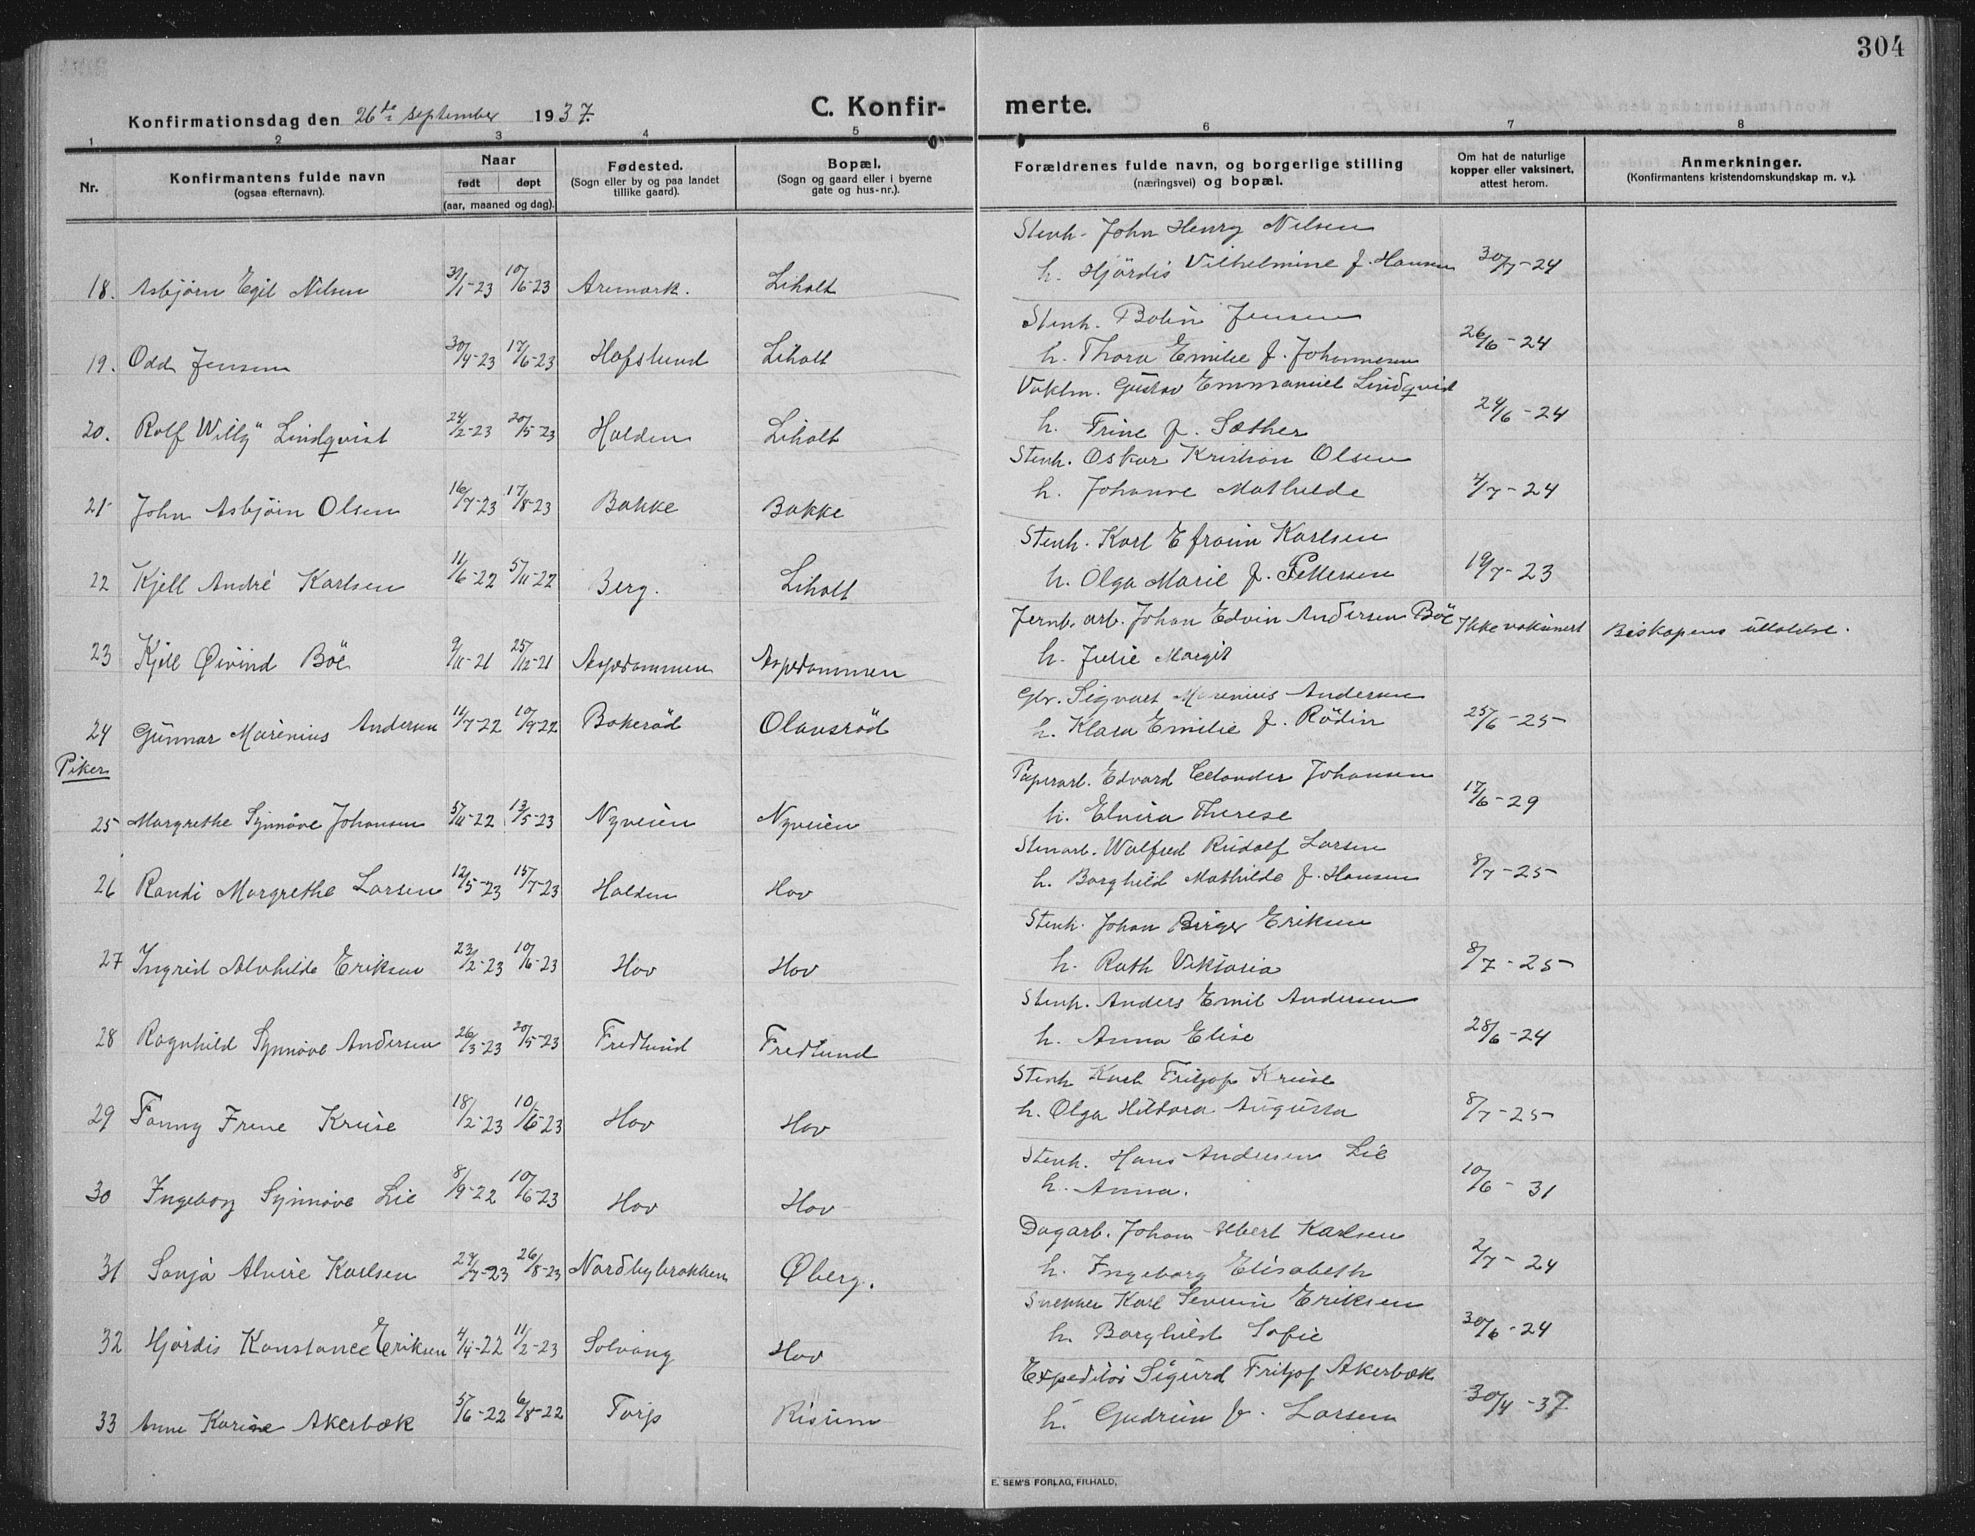 304
Konfirmationsdag den 26de september 1937.
C. Konfir- merte.
1 2 3 4 5 6 7 8
Nr.
Konfirmantens fulde navn
(ogsaa efternavn).
Naar
født døpt
(aar, maaned og dag).
Fødested.
(Sogn eller by og paa landet
tillike gaard).
Bopæl.
(Sogn og gaard eller i byerne
gate og hus-nr.).
Forældrenes fulde navn, og borgerlige stilling
(næringsvei) og bopæl.
Om hat de naturlige
kopper eller vaksinert,
attest herom.
Anmerkninger.
(Konfirmantens kristendomskundskap m. v.).
Stenh. John Henry Nilsen
18. Asbjørn Egil Nilsen 31/1-23 10/6-23 Aremark. Liholt h. Hjördis Vilhelmine f. Hansen 30/7-24
Stenh. Bolin Jensen
19. Odd Jensen 30/4-23 17/6-23 Hafslund Liholt h. Thora Emilie f. Johannesen 26/6-24
Vaktm. Gustav Emmanuel Lindqvid
20. Rolf Willy Lindqvist 24/2-23 20/5-23 Halden Liholt h. Trine f. Sæther 24/6-24
Stenh. Oskar Kristian Olsen
21 John Asbjørn Olsen 16/7-23 17/8-23 Bakke Bakke h. Johanne Mathilde 4/7-24
Stenh. Karl Efraim Karlsen
22 Kjell André Karlsen 11/6-22 5/11-22 Berg. Liholt h. Olga Marie f. Pettersen 19/7-23
Jernb. arb. Johan Edvin Andersen Böe Ikke vaksinert Biskopens uttalelse.
23 Kjell Øivind Böe 9/11-21 25/12-21 Aspedammen Aspedammen h. Julie Margit
Gbr. Sigvart Marenius Andersen
24 Gunnar Marenius Andersen 11/7-22 10/9-22 Bakeröd Olavsröd h. Klara Emilie f. Rödin 25/6-25
Piker
Papirarb. Edvard Celander Johansen
25 Margrethe Synnøve Johansen 5/11-22 13/5-23 Nyveien Nyveien h. Elvira Therese 17/6-29
Stenarb. Walfred Rudolf Larsen
26 Randi Margrethe Larsen 12/5-23 15/7-23 Halden Hov h. Borghild Mathilde f. Hansen 8/7-25
Stenh. Johan Birger Eriksen
27 Ingrid Alvhilde Eriksen 23/2-23 10/6-23 Hov Hov h. Ruth Viktoria 8/7-25
Stenh. Anders Emil Andersen
28 Ragnhild Synnøve Andersen 26/3-23 20/5-23 Fredlund Fredlund h. Anna Elise 28/6-24
Stenh Karl Fritjof Kruse
29 Fanny Irene Kruse 18/2-23 10/6-23 Hov Hov h. Olga Hildora Augusta 8/7-25
Stenh. Hans Andersen Lie
30 Ingeborg Synnøve Lie 8/9-22 10/6-23 Hov Hov h. Anna. 10/6-31
Dagarb. Johan Albert Karlsen
31 Sonja Alvire Karlsen 27/7-23 26/8-23 Nordbybrakken Øberg. h. Ingeborg Elisabeth 2/7-24
Snekker Karl Severin Eriksen
32 Hjördis Konstance Eriksen 4/4-22 11/2-23 Solvang Hov h. Borghild Sofie 30/6-24
Expeditör Sigurd Fritjof Akerbæk
33 Anne Karine Akerbæk 5/6-22 6/8-22 Torp Risum h. Gudrun f. Larsen 30/4-37
E. SEM'S FORLAG, FR.HALD,